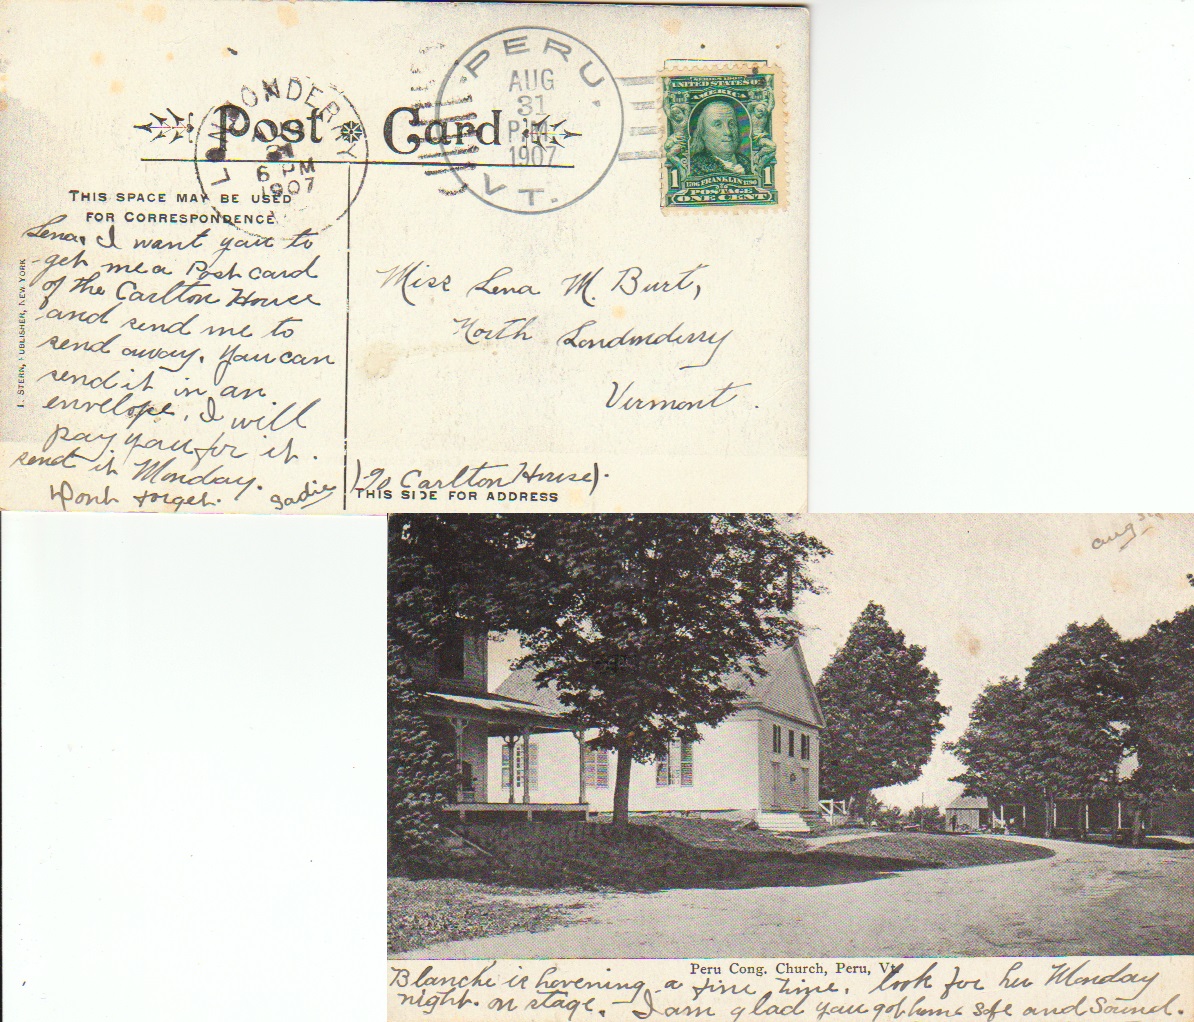 PERU.
VT.
AUG
31
P.M.
1907
LONDONDERRY
31
6 PM
1907
Post Card
SERIES 1902
UNITED STATES OF
AMERICA
1706 FRANKLIN 1790
1 POSTAGE 1
ONE CENT
THIS SPACE MAY BE USED
FOR CORRESPONDENCE
Lena, I want you to
get me a Post card
of the Carlton House
and send me to
send away. You can
send it in an
envelope, I will
pay you for it.
send it Monday.
Dont forget. Sadie
I. STERN, PUBLISHER, NEW YORK
Miss Lena M. Burt,
North Londonderry
Vermont.
(To Carlton House).
THIS SIDE FOR ADDRESS
Aug 31
Peru Cong. Church, Peru, Vt.
Blanche is hovening a fine time. look for her Monday
night. on stage. I am glad you got home safe and sound.